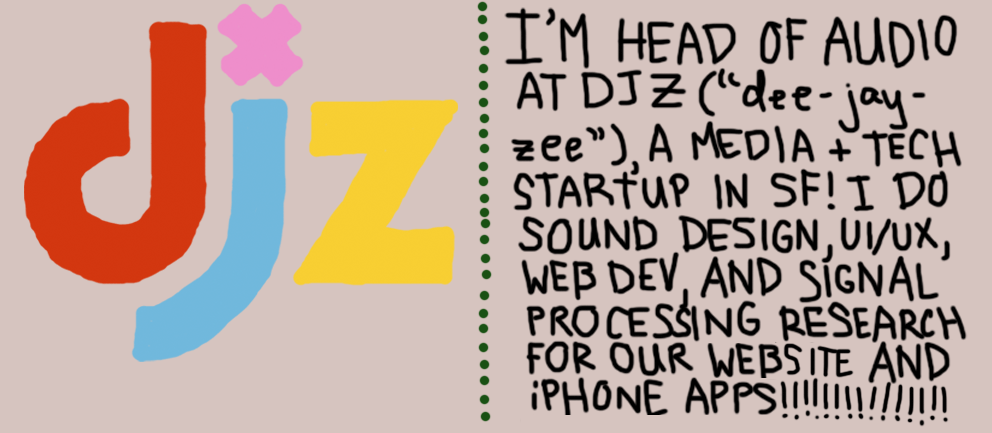 djz
I'M HEAD OF AUDIO
AT DJZ ("dee-jay-
zee"), A MEDIA + TECH
STARTUP IN SF! I DO
SOUND DESIGN, UI/UX,
WEB DEV, AND SIGNAL
PROCESSING RESEARCH
FOR OUR WEBSITE AND
iPHONE APPS!!!!!!!!!!!!!!